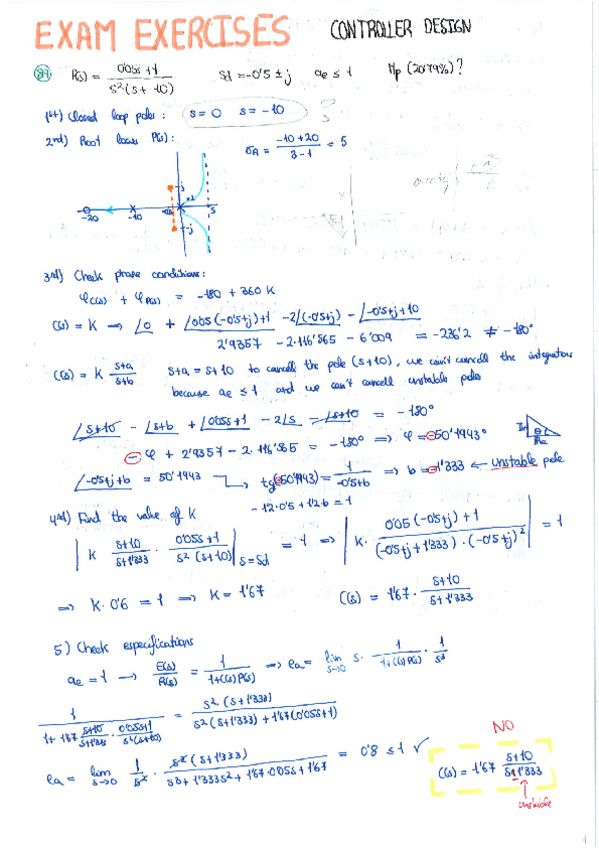 EXAM EXERCISES CONTROLLER DESIGN
P(s) = 0'05s + 1 / s²(s + 10) Sd = -0'5 ± j ae ≤ 1 Mp (20'79%)?
1st) Closed loop poles: s = 0 s = -10 ?
2nd) Root locus P(s): σA = -10 + 20 / 3 - 1 = 5
j
-20 -10 x2 5
-j
3rd) Check phase conditions:
φC(s) + φP(s) = -180 + 360 K
C(s) = K → /0 + /0'05(-0'5+j)+1 - 2/(-0'5+j) - /-0'5+j+10
2'9357 - 2·116'565 - 6'009 = -236'2 ≠ -180°
C(s) = K s+a / s+b s+a = s+10 to cancel the pole (s+10), we can't cancel the integrator
because ae ≤ 1 and we can't cancel unstable pole
/s+10 - /s+b + /0'05s+1 - 2/s - /s+10 = -180°
- φ + 2'9357 - 2·116'565 = -180° ⇒ φ = -50'1943°
Im θ Re
/-0'5+j+b = 50'1943 → tg(-50'1943) = 1 / -0'5+b ⇒ b = -1'333 ← unstable pole
-1'2·0'5 + 1'2·b = 1
4rd) Find the value of K
| K s+10 / s+1'333 · 0'05s+1 / s²(s+10) | s=Sd = 1 ⇒ | K · 0'05(-0'5+j)+1 / (-0'5+j+1'333)·(-0'5+j)² | = 1
⇒ K·0'6 = 1 ⇒ K = 1'67 C(s) = 1'67 · s+10 / s+1'333
5) Check especifications
ae = 1 → E(s) / R(s) = 1 / 1+C(s)P(s) ⇒ ea = lim s→0 s · 1 / 1+C(s)P(s) · 1 / s³
1 / 1 + 1'67 s+10 / s+1'333 · 0'05s+1 / s²(s+10) = s²(s+1'333) / s²(s+1'333) + 1'67(0'05s+1)
ea = lim s→0 1 / s² · s²(s+1'333) / s³ + 1'333s² + 1'67·0'05s + 1'67 = 0'8 ≤ 1 ✓
NO
C(s) = 1'67 s+10 / s±1'333
unstable